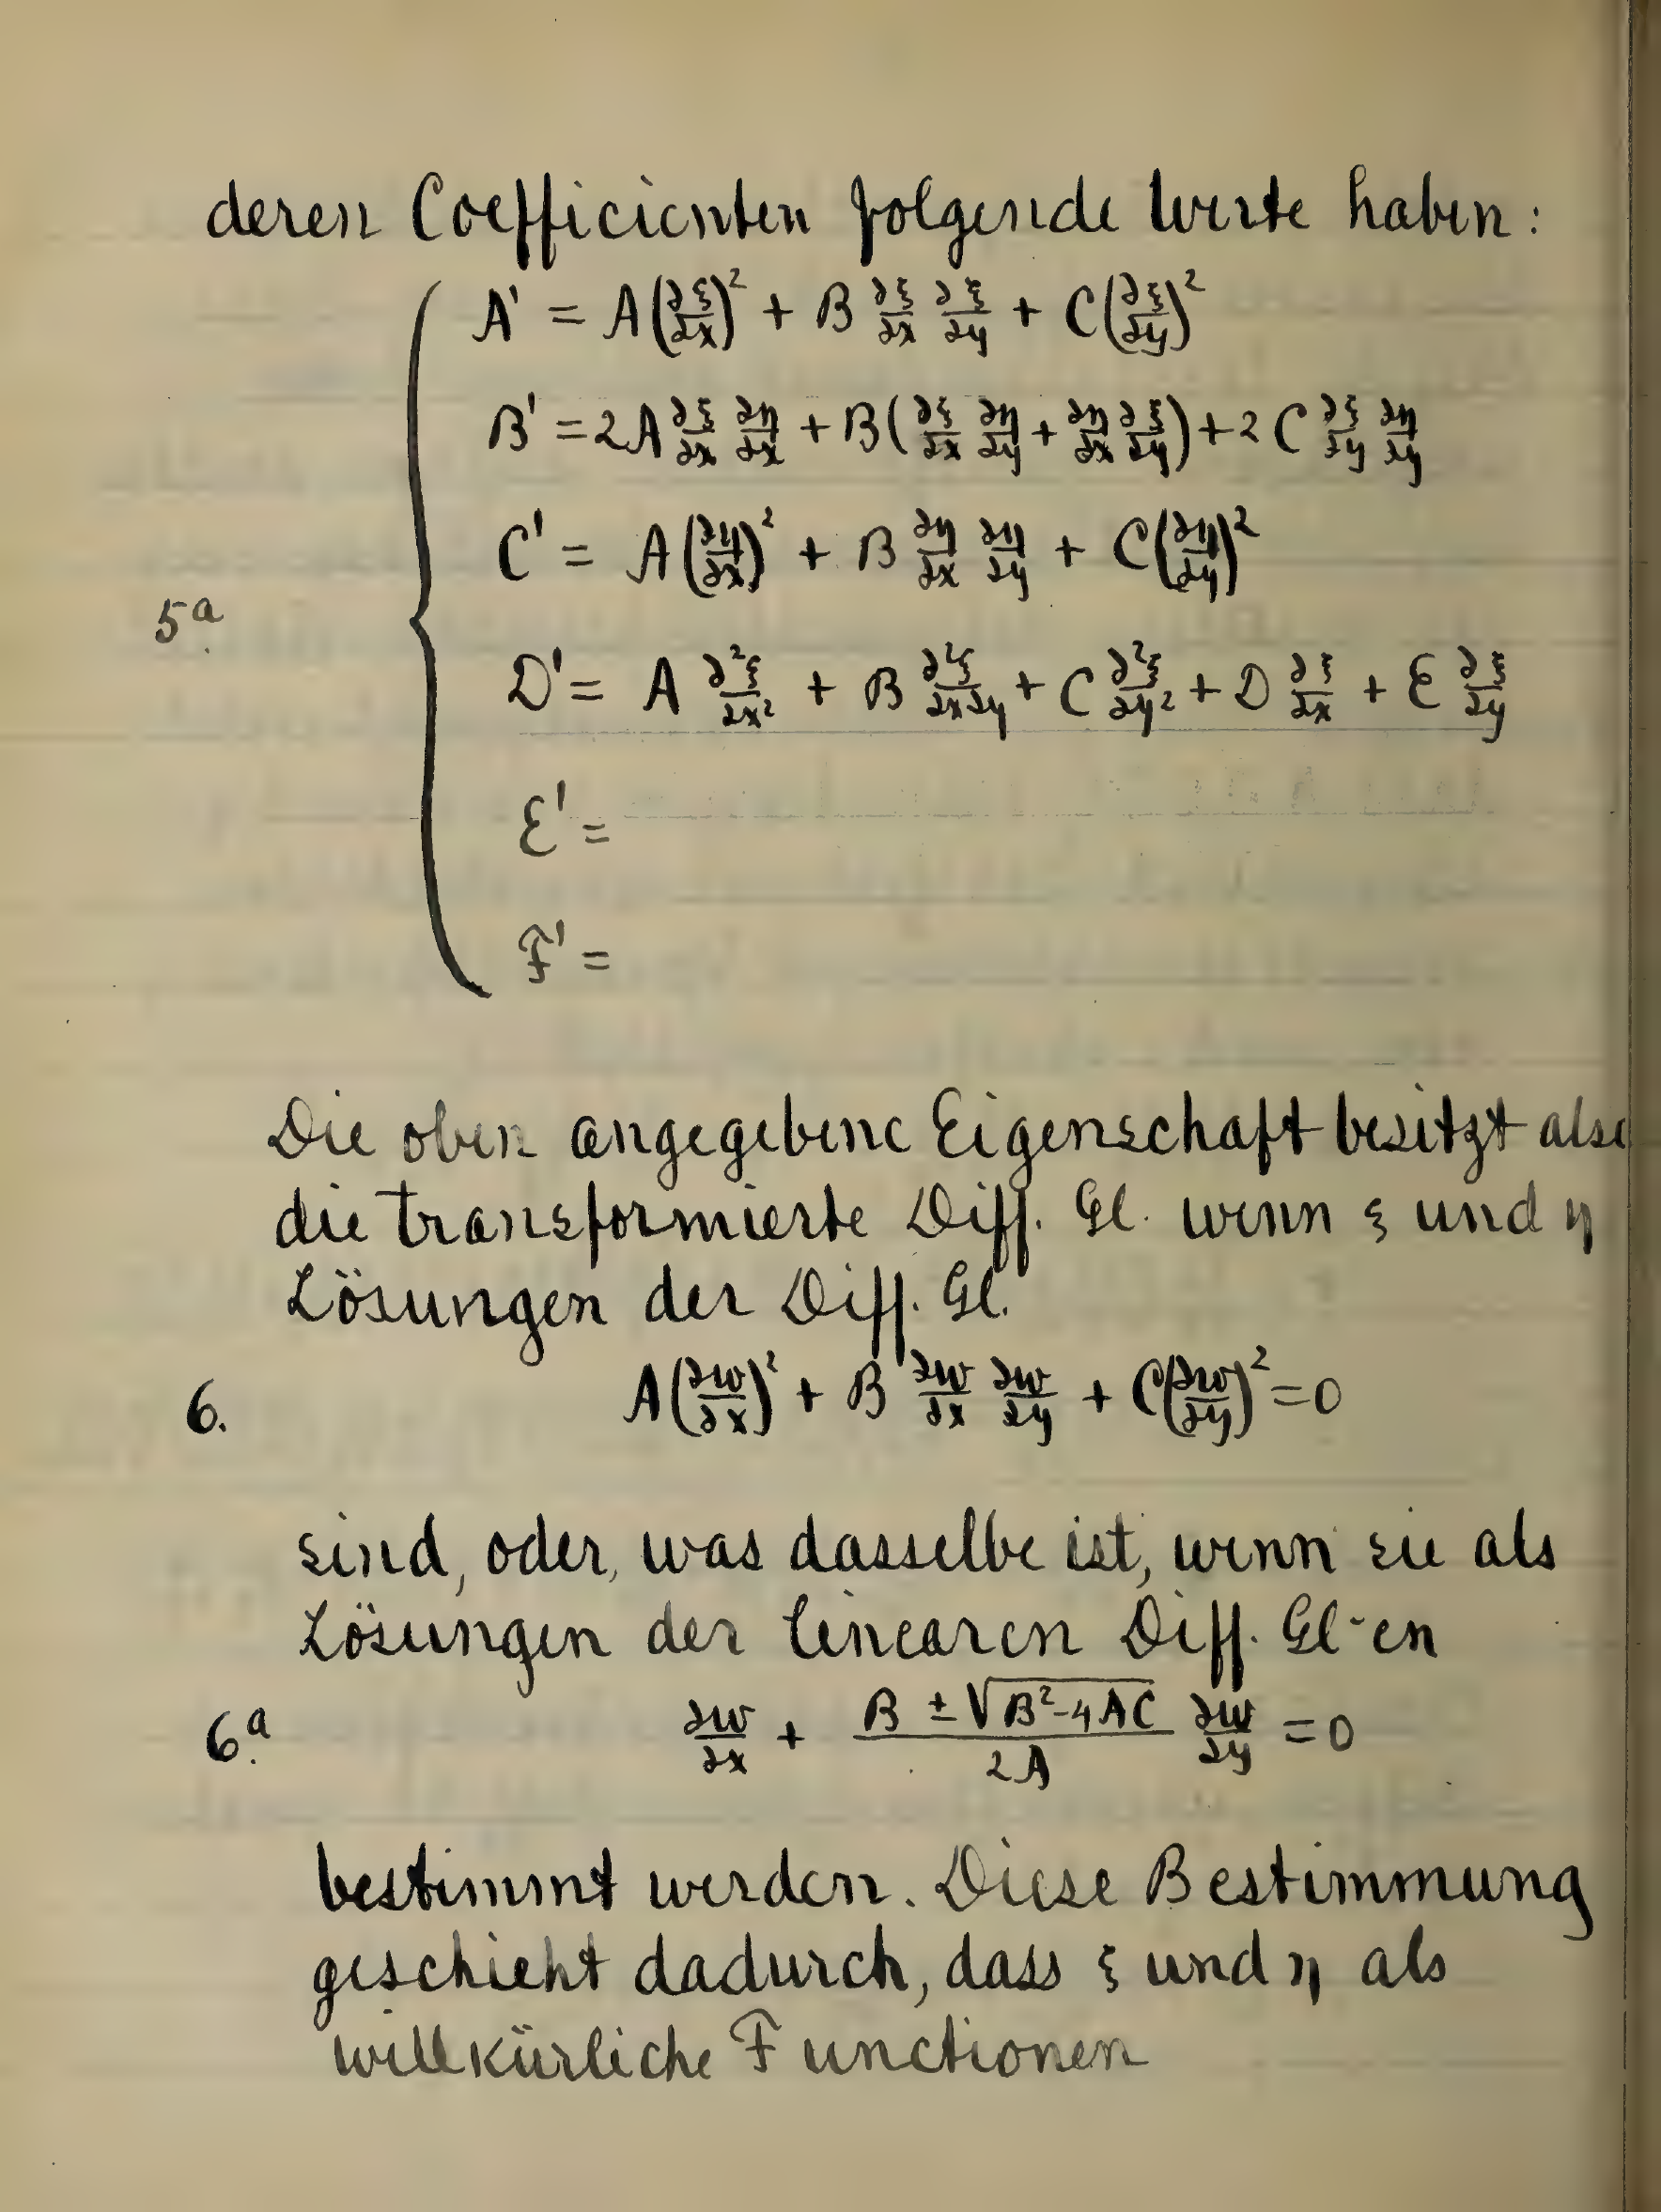 deren Coefficienten folgende Werte haben:
A' = A(∂ξ/∂x)² + B ∂ξ/∂x ∂ξ/∂y + C(∂ξ/∂y)²
B' = 2A ∂ξ/∂x ∂η/∂x + B(∂ξ/∂x ∂η/∂y + ∂η/∂x ∂ξ/∂y) + 2C ∂ξ/∂y ∂η/∂y
C' = A(∂η/∂x)² + B ∂η/∂x ∂η/∂y + C(∂η/∂y)²
5ª.
D' = A ∂²ξ/∂x² + B ∂²ξ/∂x∂y + C ∂²ξ/∂y² + D ∂ξ/∂x + E ∂ξ/∂y
E' =
F' =
Die oben angegebene Eigenschaft besitzt also
die transformierte Diff. Gl. wenn ξ und η
Lösungen der Diff. Gl.
6. A(∂w/∂x)² + B ∂w/∂x ∂w/∂y + C(∂w/∂y)² = 0
sind, oder, was dasselbe ist, wenn sie als
Lösungen der linearen Diff. Gl-en
6ª. ∂w/∂x + (B ± √(B²-4AC))/2A ∂w/∂y = 0
bestimmt werden. Diese Bestimmung
geschieht dadurch, dass ξ und η als
willkürliche Functionen